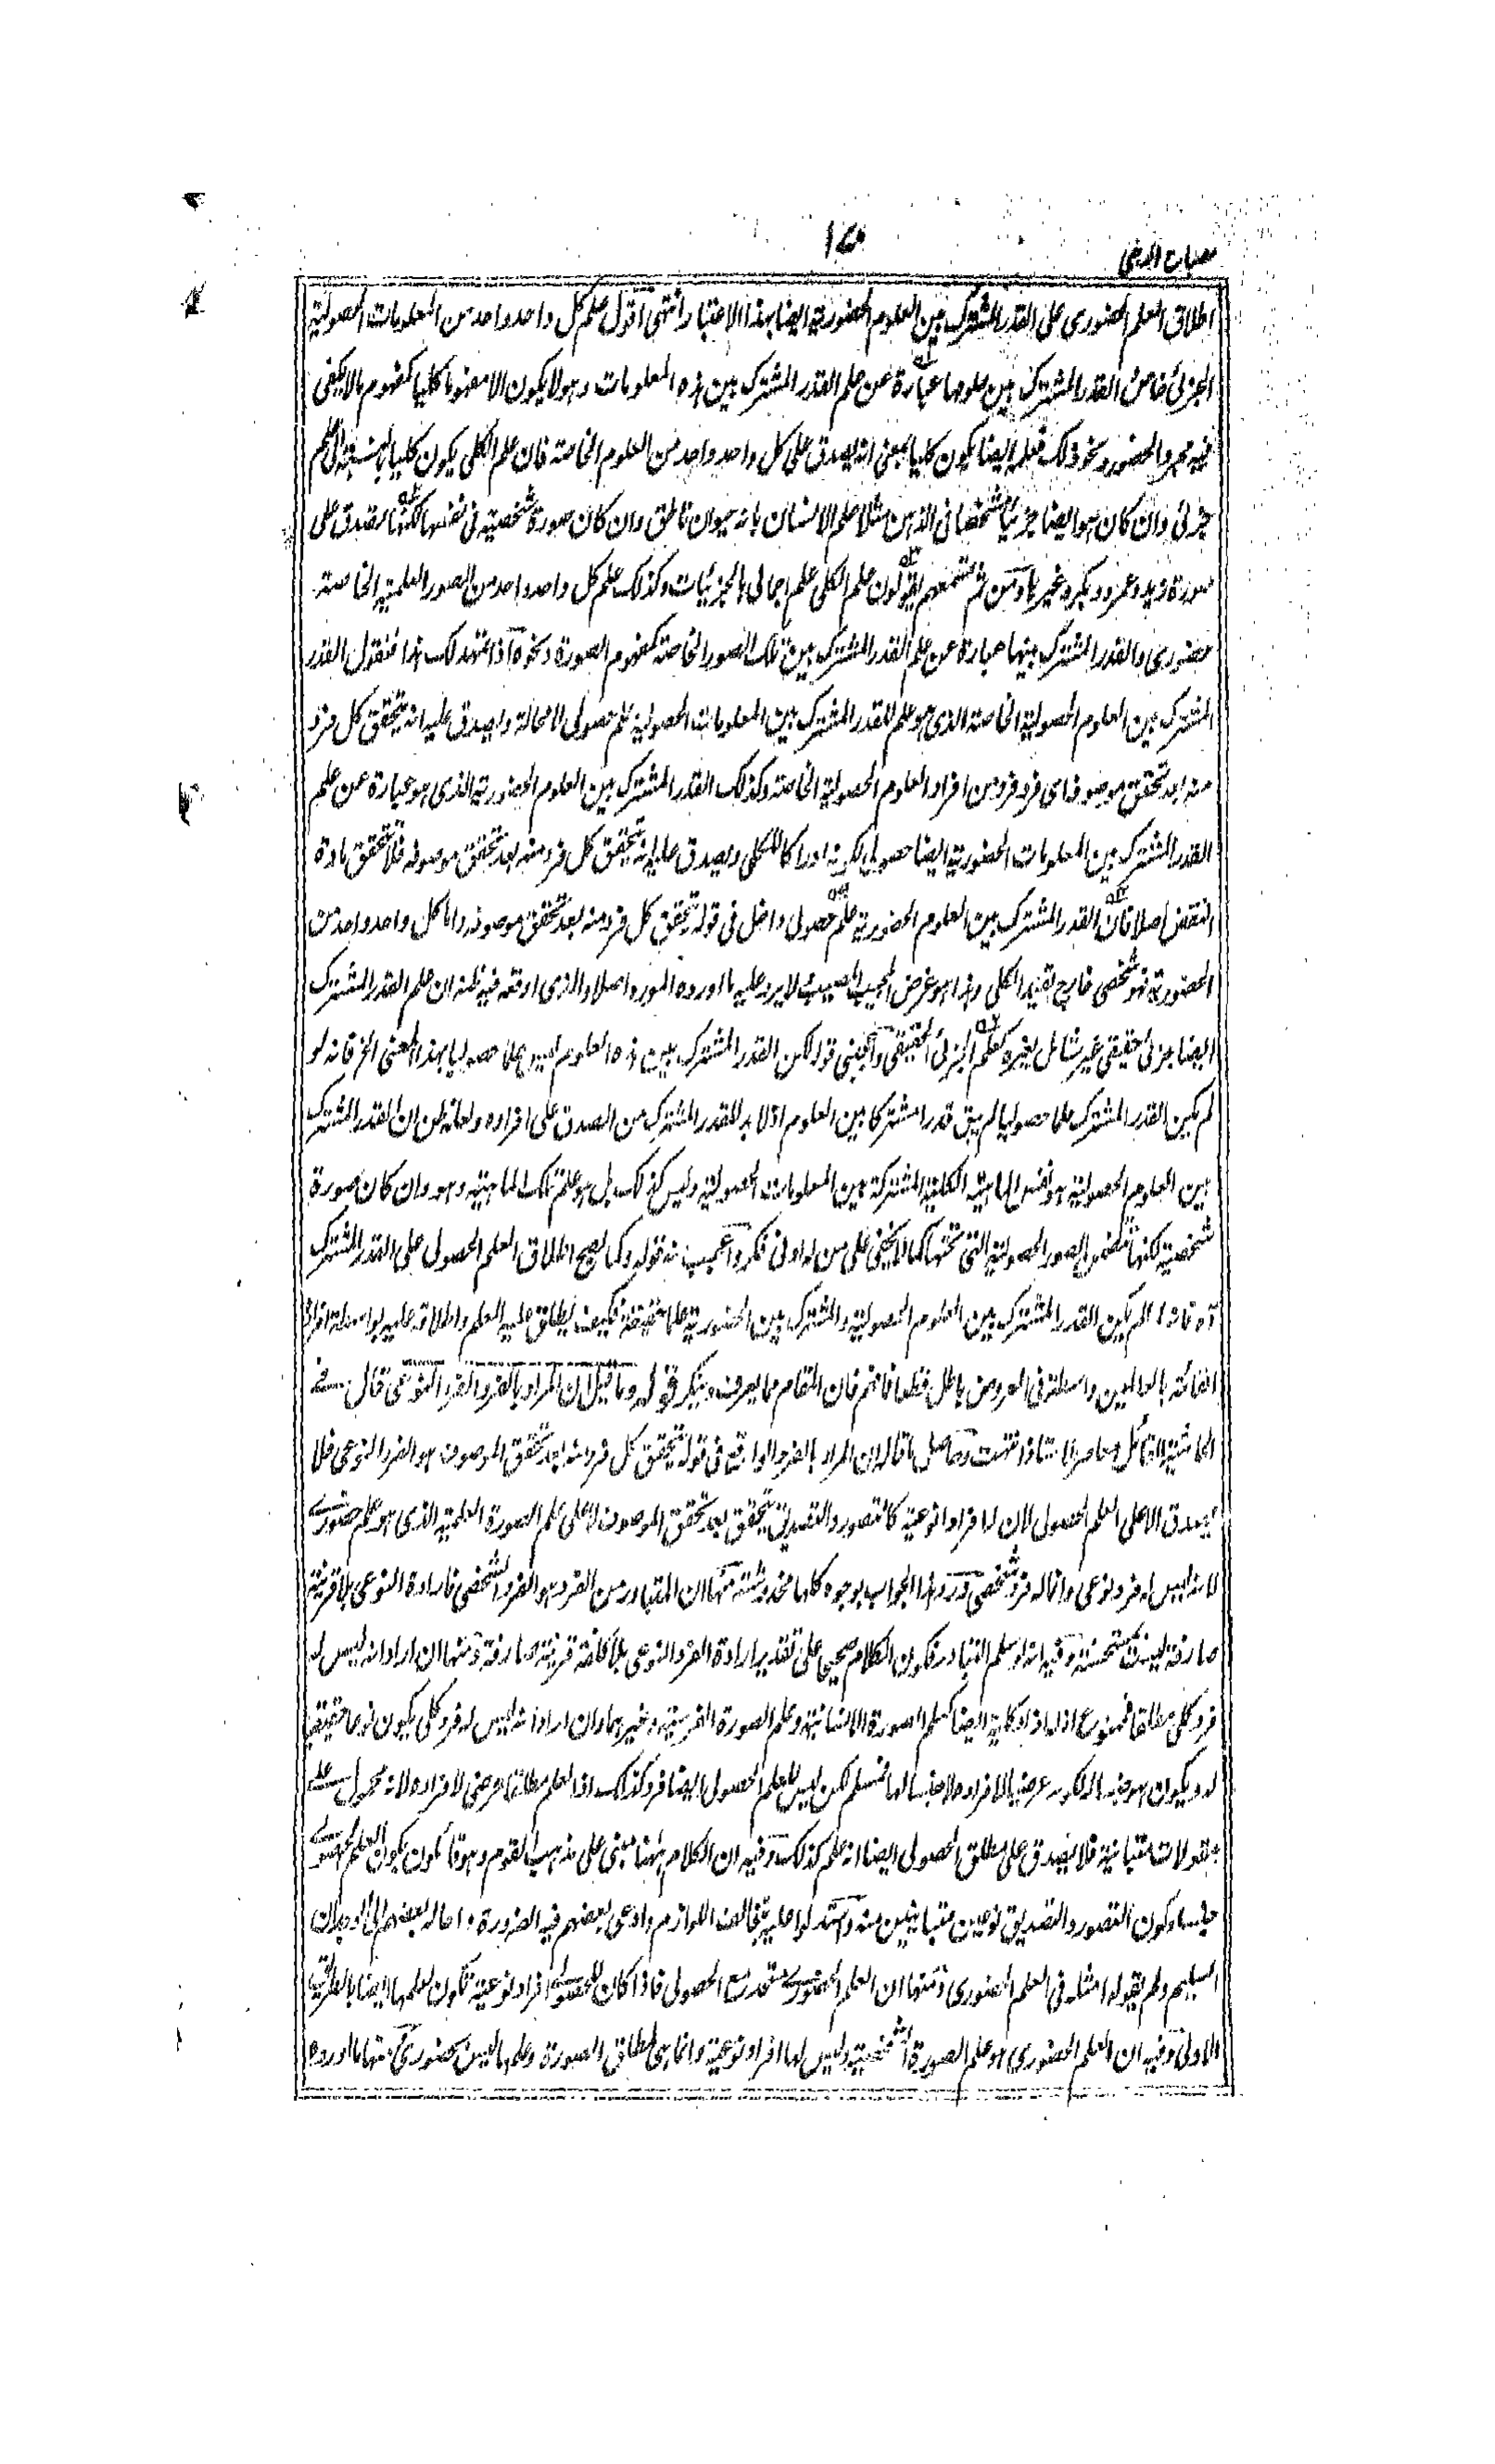 مصباح الدجى
اطلاق العلم الحضوري على القدر المشترك بين العلوم الحضورية ايضا بهذا الاعتبار انتهى اقول علم كل واحد واحد من المعلومات الحصولية
الجزئي خاص القدر المشترك بين علومها عبارة عن علم القدر المشترك بين هذه المعلومات وهو لا يكون الا مفهوما كليا كمفهوم ما لا يكفي
فيه مجرد الحضور ونحو ذلك فعلمه ايضا يكون كليا بمعنى انه يصدق على كل واحد واحد من العلوم الخاصة فان علم الكلي يكون كليا بالنسبة الى علم
جزئي وان كان هو ايضا جزئيا مشخصا في الذهن مثلا علم الانسان بانه حيوان ناطق وان كان صورة شخصية في نفسها لكنها تصدق على
صورة زيد وعمرو وبكر وغيرها ومن ثم تسمعهم يقولون علم الكلي علم اجمالي بالجزئيات وكذلك علم كل واحد واحد من الصور العلمية الخاصة
حضوري والقدر المشترك بينها عبارة عن علم القدر المشترك بين تلك الصور الخاصة كمفهوم الصورة ونحوه اذا تمهد لك هذا فنقول القدر
المشترك بين العلوم الحصولية الخاصة الذي هو علم للقدر المشترك بين المعلومات الحصولية علم حصولي لا محالة ويصدق عليه انه يتحقق كل فرد
منه بعد تحقق موصوفه اي فرد فرد من افراد العلوم الحصولية الخاصة وكذلك القدر المشترك بين العلوم الحضورية الذي هو عبارة عن علم
القدر المشترك بين المعلومات الحضورية ايضا حصولي لكونه ادراكا للكلي ويصدق عليه انه يتحقق كل فرد منه بعد تحقق موصوفه فلا تتحقق مادة
النقض اصلا فان القدر المشترك بين العلوم الحضورية علم حصولي داخل في قوله يتحقق كل فرد منه بعد تحقق موصوفه واما كل واحد واحد من
الحضورية فهو شخصي خارج بقيد الكلي وهذا هو غرض المجيب المصيب لا يرد عليه ما اورده المورد اصلا والذي اوقعه فيه ظنه ان علم القدر المشترك
ايضا جزئي حقيقي غير شامل لغيره كعلم الجزئي الحقيقي والعجب قوله لكن القدر المشترك بين هذه العلوم ليس علما حصوليا بهذا المعنى الخ فانه لو
لم يكن القدر المشترك علما حصوليا لم يبق قدرا مشتركا بين العلوم اذ لا بد للقدر المشترك من الصدق على افراده ولعله ظن ان القدر المشترك
بين العلوم الحصولية هو نفس الماهية الكلية المشتركة بين المعلومات الحصولية وليس كذلك بل هو علم تلك الماهية وهو وان كان صورة
شخصية لكنها تتضمن الصور الحصولية التي تحتها كما لا يخفى على من له ادنى فكر واعجب منه قوله وكما يصح اطلاق العلم الحصولي على القدر المشترك
اه فانه اذا لم يكن القدر المشترك بين العلوم الحصولية والمشترك بين الحضورية علما حقيقة فكيف يطلق عليه العلم واطلاقه عليه بواسطة افراده
القائمة بالعالمين واسطة في العروض باطل قطعا فافهم فان المقام مما يعرف وينكر قوله وما قيل ان المراد بالفرد الفرد النوعي قال في
الحاشية القائل معاصر الاستاذ انتهت وحاصل ما قاله ان المراد بالفرد الواقع في قوله يتحقق كل فرد منه بعد تحقق الموصوف هو الفرد النوعي فلا
يصدق الا على العلم الحصولي لان له افرادا نوعية كالتصور والتصديق يتحقق بعد تحقق الموصوف لا على علم الصورة العلمية الذي هو علم حضوري
لانه ليس له فرد نوعي وانما له فرد شخصي ورد هذا الجواب بوجوه كلها مخدوشة منها ان المتبادر من الفرد هو الفرد الشخصي فارادة النوعي بلا قرينة
صارفة ليست مستحسنة وفيه انه لو سلم التبادر فكون الكلام صحيحا على تقدير ارادة الفرد النوعي بلا كلفة قرينة صارفة ومنها ان اراد انه ليس له
فرد كلي مطلقا فممنوع اذ له افراد كلية ايضا كعلم الصورة الانسانية وعلم الصورة الفرسية وغيرهما وان اراد انه ليس له فرد كلي يكون نوعا حقيقيا
له ويكون هو جنسا لكونه عرضيا لافراده لا جنسا لها فمسلم لكن ليس للعلم الحصولي ايضا فرد كذلك اذ العلم مطلقا عرضي لافراده لانه محمول على
مقولات متباينة فلا يصدق على مطلق الحصولي ايضا انه علم كذلك وفيه ان الكلام ههنا مبني على مذهب القوم وهو قائلون بكون العلم الحصولي
جنسا وكون التصور والتصديق نوعين متباينين منه واستدلوا عليه بتخالف اللوازم وادعى بعضهم فيه الضرورة واحاله بعضهم الى الوجدان
السليم ولم يقولوا مثله في العلم الحضوري ومنها ان العلم الحضوري متحد مع الحصولي فاذا كان للحصولي افراد نوعية تكون لعلمها ايضا بالطريق
الاولى وفيه ان العلم الحضوري هو علم الصورة الشخصية وليس لها افراد نوعية وانما هي لمطلق الصورة وعلمها ليس بحضوري ومنها ما اورده